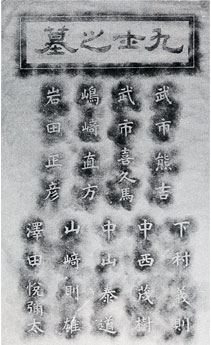 九士之墓
武市熊吉
武市喜久馬
嶋崎直方
岩田正彦
下村義則
中西茂樹
中山泰道
山崎則雄
澤田悦彌太